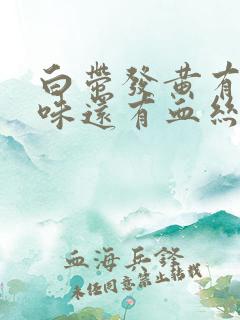 白带發黄有
味還有血絲
血海兵鋒
未经同意禁止转载